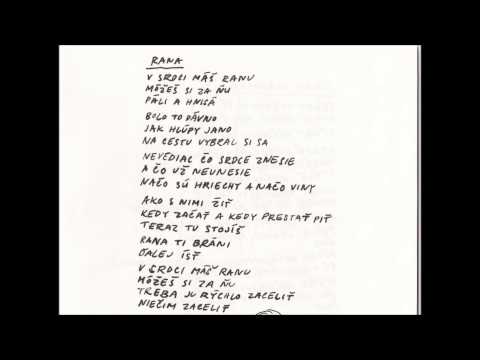 RANA
V SRDCI MÁŠ RANU
MÔŽEŠ SI ZA ŇU
PÁLI A HNISÁ
BOLO TO DÁVNO
JAK HLÚPY JANO
NA CESTU VYBRAL SI SA
NEVEDIAC ČO SRDCE ZNESIE
A ČO UŽ NEUNESIE
NAČO SÚ HRIECHY A NAČO VINY
AKO S NIMI ŽIŤ
KEDY ZAČAŤ A KEDY PRESTAŤ PIŤ
TERAZ TU STOJÍŠ
RANA TI BRÁNI
ĎALEJ ÍSŤ
V SRDCI MÁŠ RANU
MÔŽEŠ SI ZA ŇU
TREBA JU RÝCHLO ZACELIŤ
NIEČIM ZACELIŤ